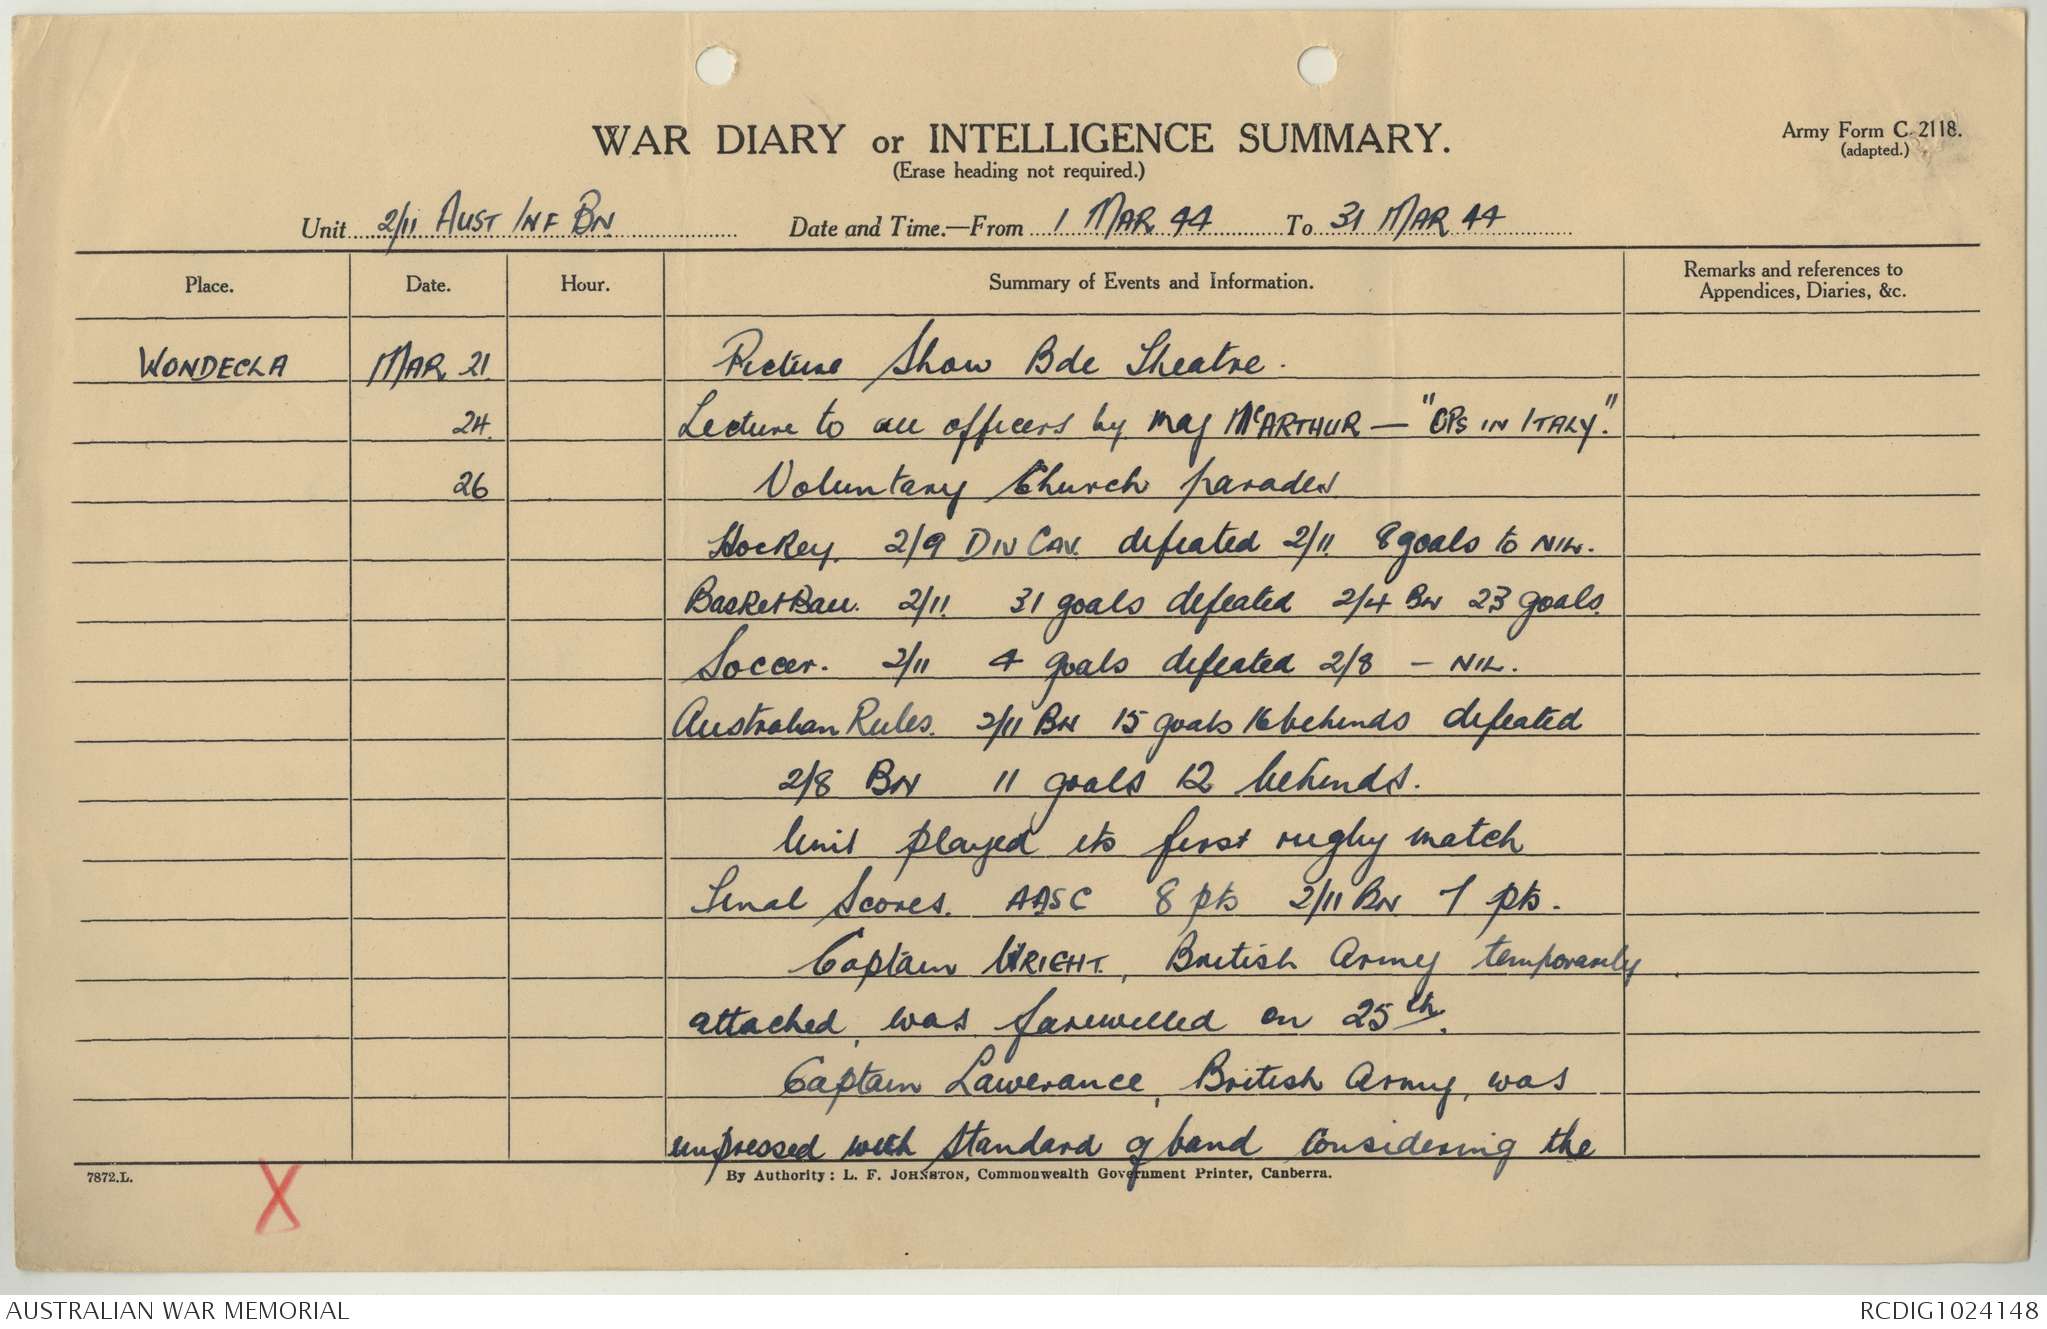 WAR DIARY or INTELLIGENCE SUMMARY.
(Erase heading not required.)
Army Form C. 2118.
(adapted.)
Unit 2/11 AUST INF BN. Date and Time.—From 1 MAR 44 To 31 MAR 44
Place. Date. Hour. Summary of Events and Information. Remarks and references to Appendices, Diaries, &c.
WONDECLA MAR 21. Picture Show Bde Theatre.
24. Lecture to all officers by Maj McARTHUR — "OPs IN ITALY."
26 Voluntary Church parades
Hockey. 2/9 DIV CAV. defeated 2/11 8 goals to NIL.
BasketBall. 2/11. 31 goals defeated 2/4 BN 23 goals.
Soccer. 2/11 4 goals defeated 2/8 – NIL.
Australian Rules. 2/11 BN 15 goals 16 behinds defeated
2/8 BN 11 goals 12 behinds.
Unit played its first rugby match
Final Scores. AASC 8 pts 2/11 BN 7 pts.
Captain WRIGHT, British Army temporarily
attached, was farewelled on 25th.
Captain Lawerance, British Army, was
impressed with standard of band considering the
7872.L. By Authority: L. F. JOHNSTON, Commonwealth Government Printer, Canberra.
X
AUSTRALIAN WAR MEMORIAL RCDIG1024148